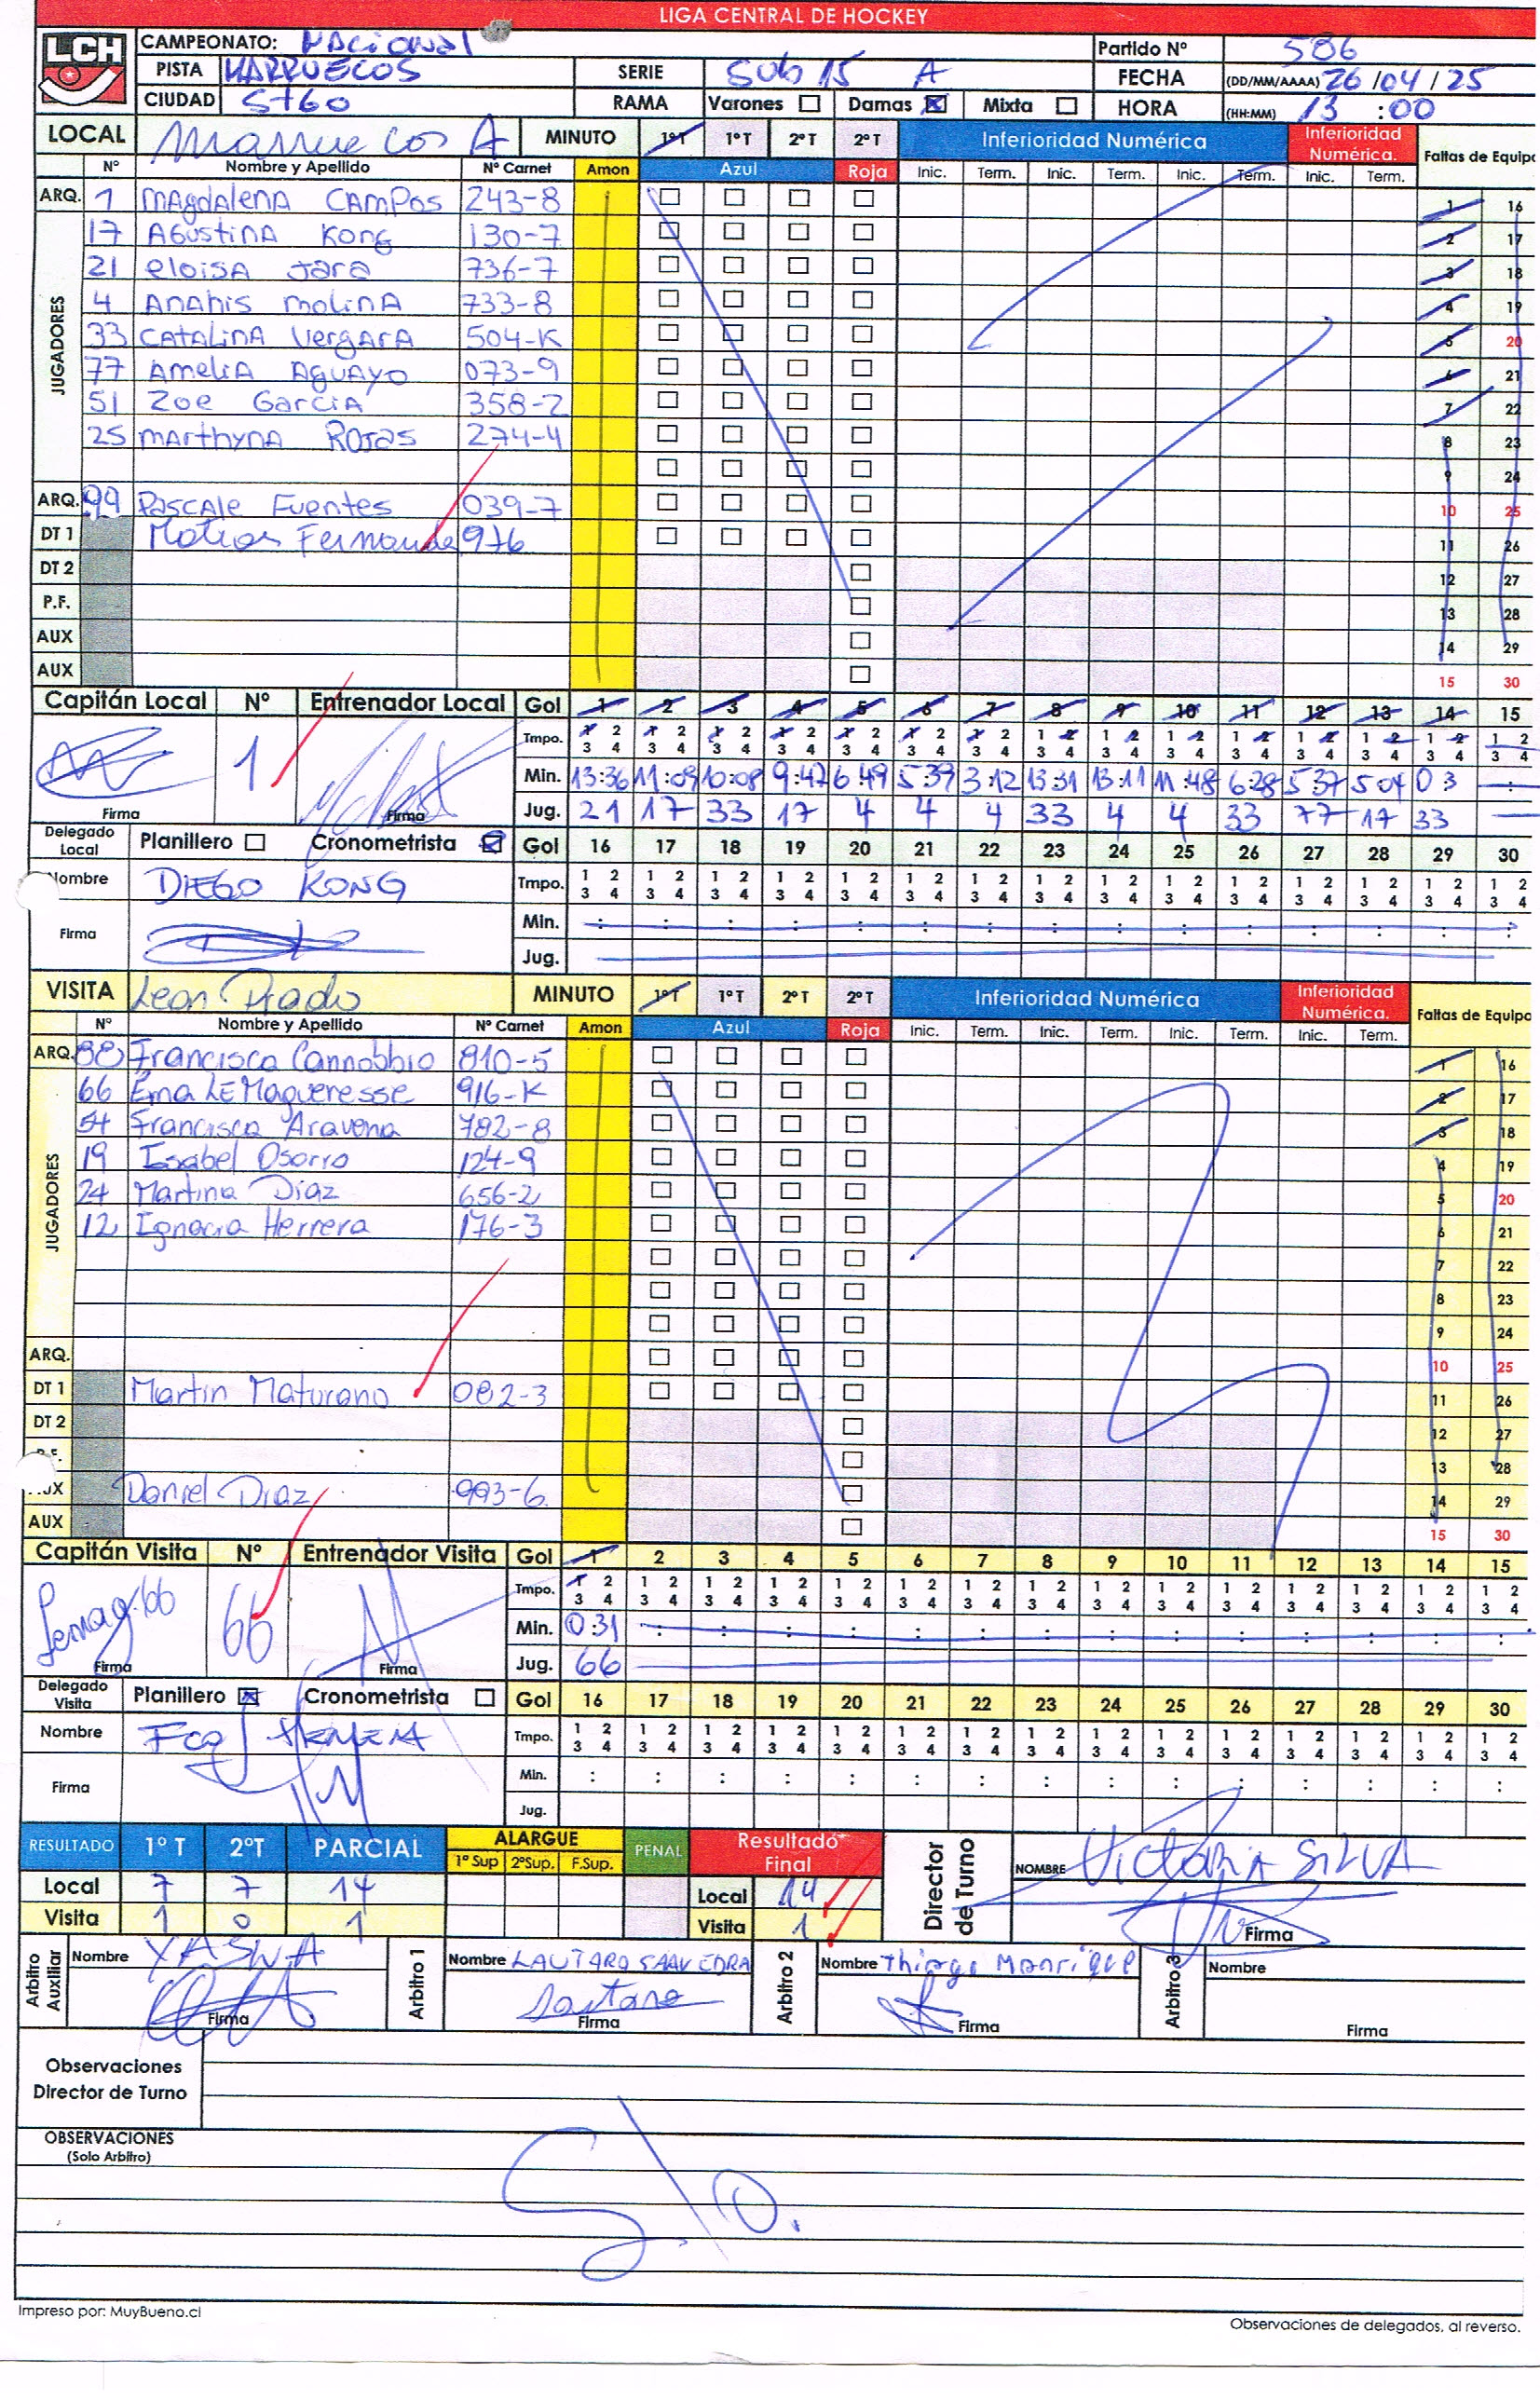 LIGA CENTRAL DE HOCKEY
LCH
CAMPEONATO: Nacional
Partido Nº 586
PISTA MARRUECOS SERIE SUB 15 A FECHA (DD/MM/AAAA) 26/04/25
CIUDAD STGO RAMA Varones Damas Mixta HORA (HH:MM) 13:00
LOCAL Marruecos A MINUTO 1ºT 1ºT 2ºT 2ºT Inferioridad Numérica Inferioridad Numérica. Faltas de Equipo
Nº Nombre y Apellido Nº Carnet Amon Azul Roja Inic. Term. Inic. Term. Inic. Term. Inic. Term.
ARQ. 1 MAgdAlenA CAmPos 243-8 1 16
JUGADORES
17 AGustinA Kong 130-7 2 17
21 eloisA Jara 736-7 3 18
4 AnAhis molinA 733-8 4 19
33 CATALinA VergArA 504-K 5 20
77 AmeliA AguAyo 073-9 6 21
51 Zoe GarciA 358-2 7 22
25 mArthynA ROJas 274-4 8 23
9 24
ARQ. 99 PascAle Fuentes 039-7 10 25
DT 1 Matias Fernande 976 11 26
DT 2 12 27
P.F. 13 28
AUX 14 29
AUX 15 30
Capitán Local Nº Entrenador Local Gol 1 2 3 4 5 6 7 8 9 10 11 12 13 14 15
Tmpo. 1 2 1 2 1 2 1 2 1 2 1 2 1 2 1 2 1 2 1 2 1 2 1 2 1 2 1 2 1 2
3 4 3 4 3 4 3 4 3 4 3 4 3 4 3 4 3 4 3 4 3 4 3 4 3 4 3 4 3 4
1 Min. 13:36 11:09 10:08 9:47 6:49 5:39 3:12 13:31 13:11 11:48 6:28 5:37 5:04 0 3
Firma Firma Jug. 21 17 33 17 4 4 4 33 4 4 33 77 17 33
Delegado Local Planillero Cronometrista Gol 16 17 18 19 20 21 22 23 24 25 26 27 28 29 30
Nombre DIEGO KONG Tmpo. 1 2 1 2 1 2 1 2 1 2 1 2 1 2 1 2 1 2 1 2 1 2 1 2 1 2 1 2 1 2
3 4 3 4 3 4 3 4 3 4 3 4 3 4 3 4 3 4 3 4 3 4 3 4 3 4 3 4 3 4
Firma Min.
Jug.
VISITA Leon Prado MINUTO 1ºT 1ºT 2ºT 2ºT Inferioridad Numérica Inferioridad Numérica. Faltas de Equipo
Nº Nombre y Apellido Nº Carnet Amon Azul Roja Inic. Term. Inic. Term. Inic. Term. Inic. Term.
ARQ. 88 Francisca Cannobbio 810-5 1 16
JUGADORES
66 Ema LE Magueresse 916-K 2 17
54 Francisca Aravena 782-8 3 18
19 Isabel Osorio 124-9 4 19
24 Martina Diaz 656-2 5 20
12 Ignacia Herrera 176-3 6 21
7 22
8 23
9 24
ARQ. 10 25
DT 1 Martin Maturano 082-3 11 26
DT 2 12 27
13 28
Daniel Diaz 993-6 14 29
AUX 15 30
Capitán Visita Nº Entrenador Visita Gol 1 2 3 4 5 6 7 8 9 10 11 12 13 14 15
Tmpo. 1 2 1 2 1 2 1 2 1 2 1 2 1 2 1 2 1 2 1 2 1 2 1 2 1 2 1 2 1 2
3 4 3 4 3 4 3 4 3 4 3 4 3 4 3 4 3 4 3 4 3 4 3 4 3 4 3 4 3 4
66 Min. 0:31
Firma Firma Jug. 66
Delegado Visita Planillero Cronometrista Gol 16 17 18 19 20 21 22 23 24 25 26 27 28 29 30
Nombre Tmpo. 1 2 1 2 1 2 1 2 1 2 1 2 1 2 1 2 1 2 1 2 1 2 1 2 1 2 1 2 1 2
3 4 3 4 3 4 3 4 3 4 3 4 3 4 3 4 3 4 3 4 3 4 3 4 3 4 3 4 3 4
Firma Min. : : : : : : : : : : : : : : :
Jug.
RESULTADO 1º T 2ºT PARCIAL ALARGUE 1º Sup 2ºSup. F.Sup. PENAL Resultado Final Director de Turno NOMBRE Victoria SILVA
Local 7 7 14 Local 14
Visita 1 0 1 Visita 1 Firma
Arbitro Auxiliar Nombre YASNA Arbitro 1 Nombre LAUTARO SAAVEDRA Arbitro 2 Nombre Thiago Manrique Arbitro 3 Nombre
Firma Lautaro Firma Firma Firma
Observaciones
Director de Turno
OBSERVACIONES
(Solo Arbitro)
S/O.
Impreso por: MuyBueno.cl
Observaciones de delegados, al reverso.